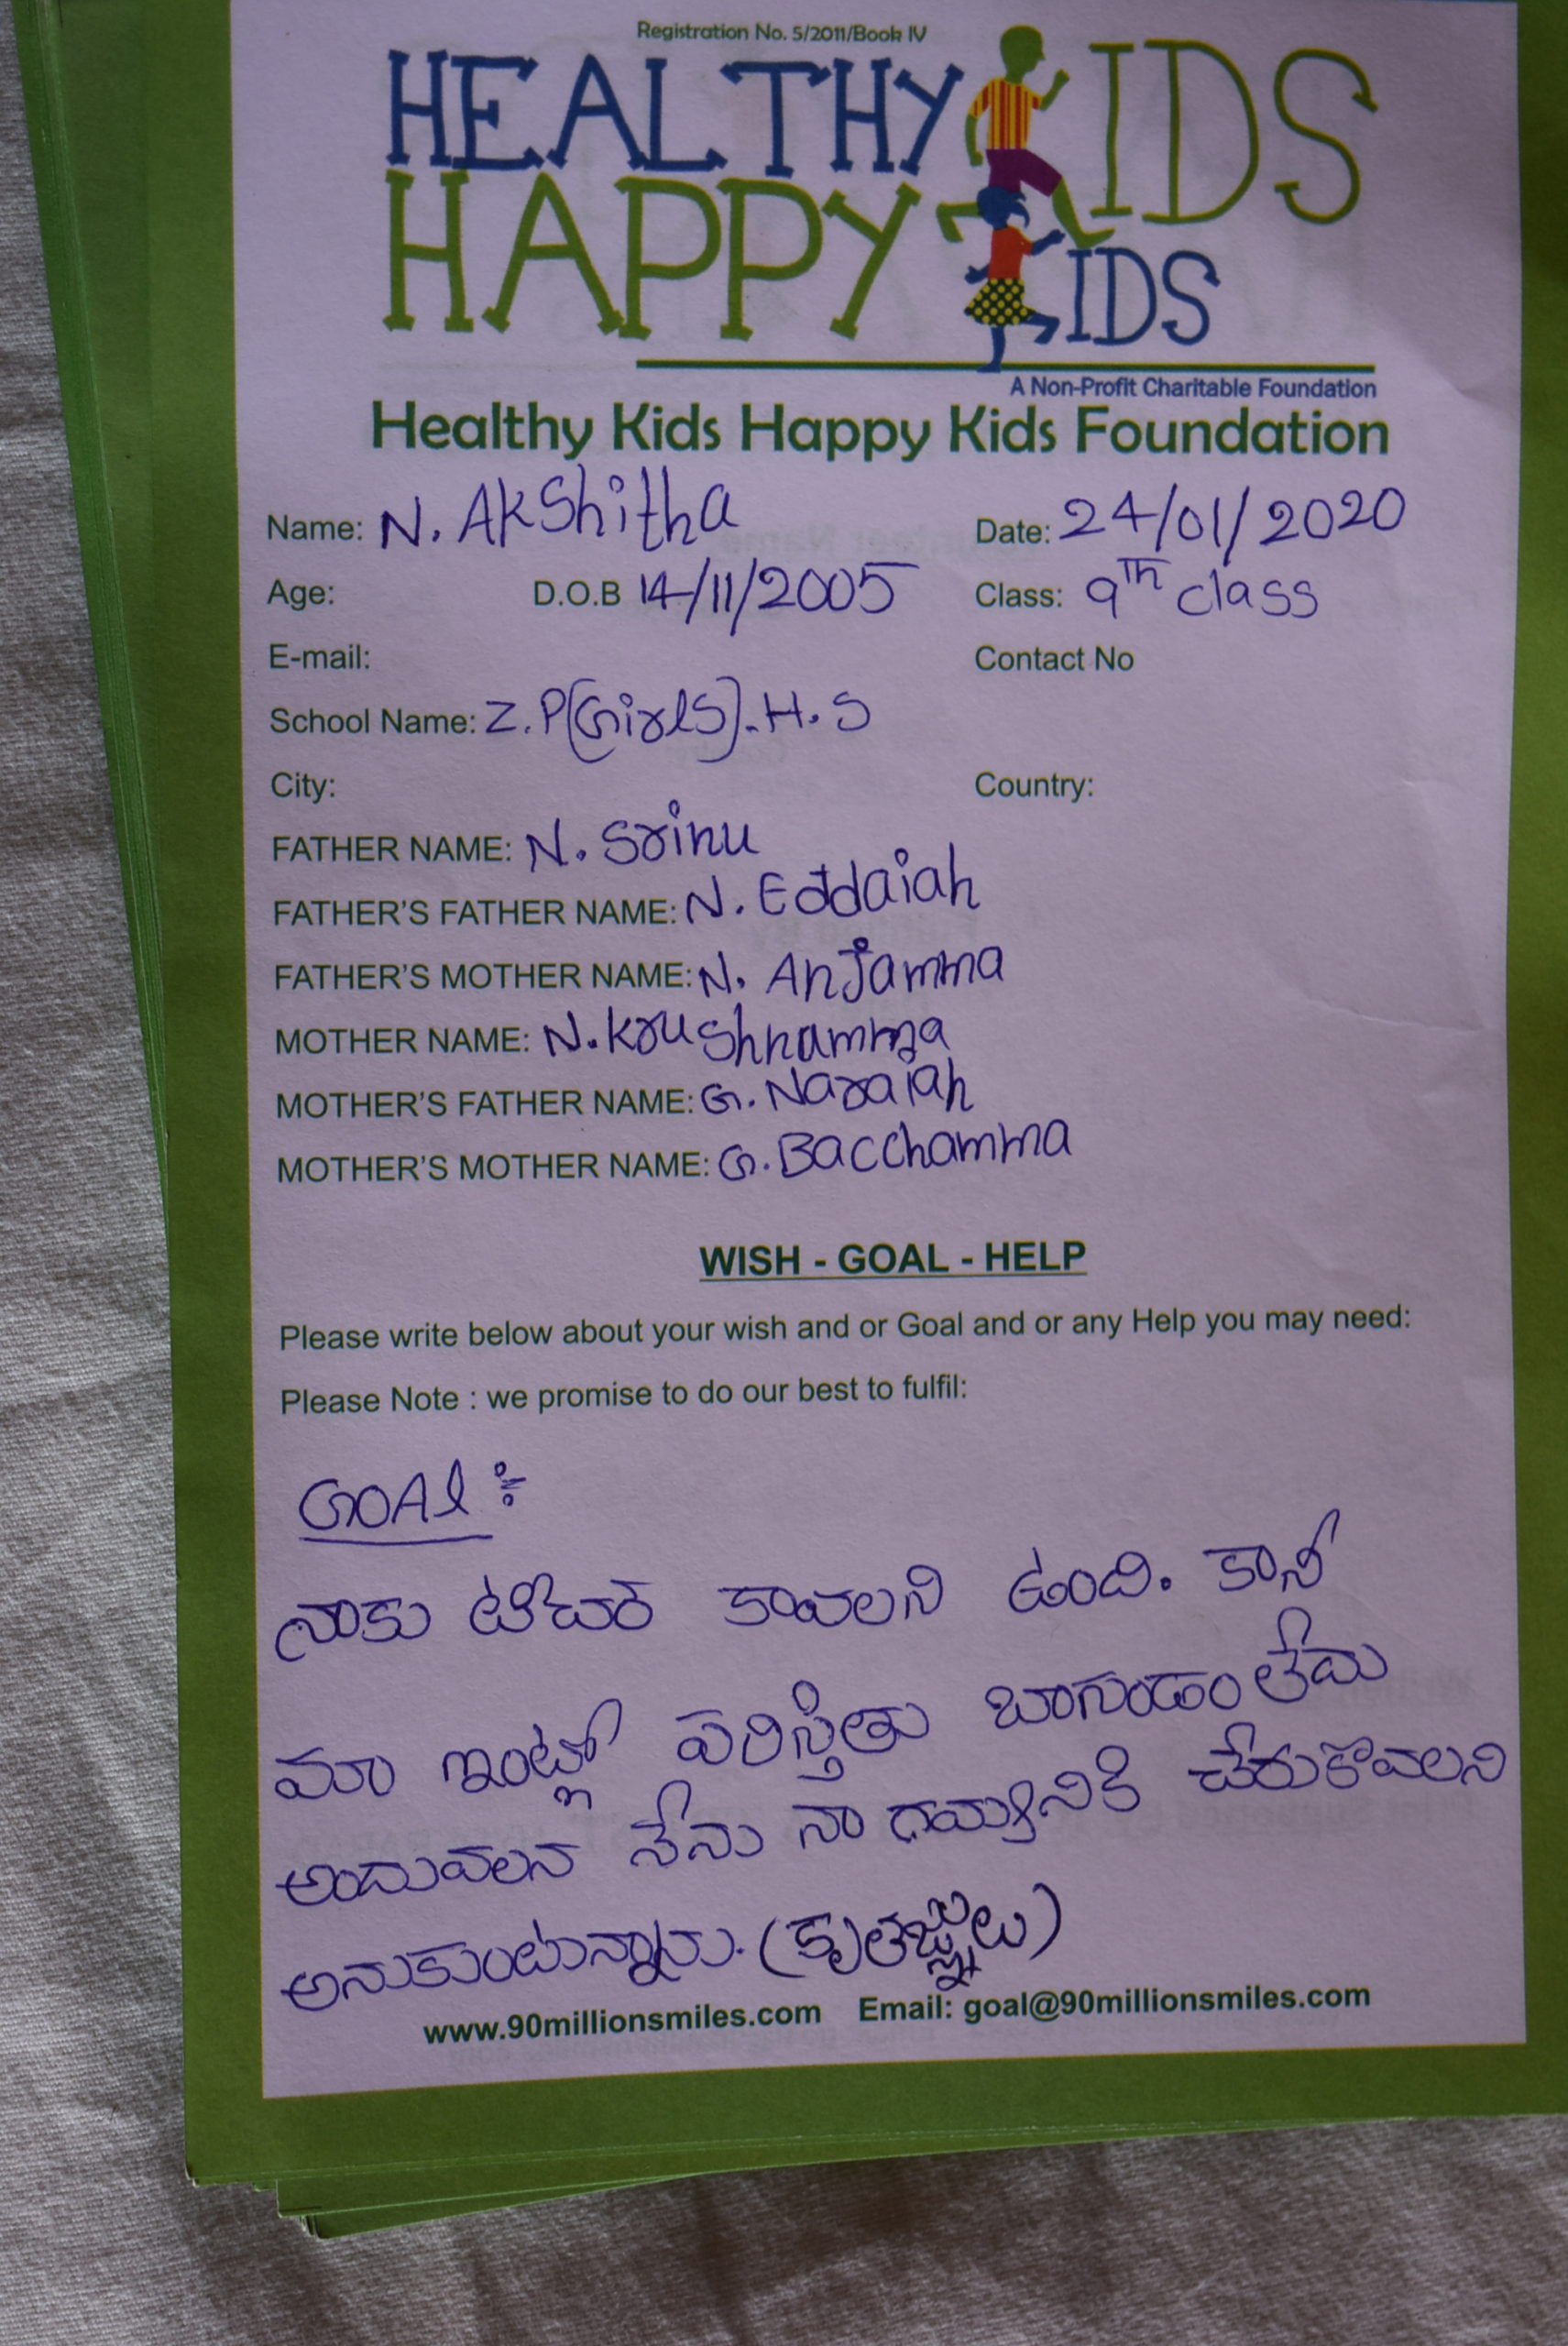 Registration No. 5/2011/Book IV
HEALTHY KIDS
HAPPY KIDS
A Non-Profit Charitable Foundation
Healthy Kids Happy Kids Foundation
Name: N. AKShitha Date: 24/01/2020
Age: D.O.B 14/11/2005 Class: 9TH class
E-mail: Contact No
School Name: Z.P(Girls).H.S
City: Country:
FATHER NAME: N. Srinu
FATHER'S FATHER NAME: N. Eddaiah
FATHER'S MOTHER NAME: N. Anjamma
MOTHER NAME: N. Krushnamma
MOTHER'S FATHER NAME: G. Naraiah
MOTHER'S MOTHER NAME: G. Bacchamma
WISH - GOAL - HELP
Please write below about your wish and or Goal and or any Help you may need:
Please Note : we promise to do our best to fulfil:
GOAl :-
నాకు టిచర కావలని ఉంది. కానీ
మా ఇంట్లో పరిస్తితు బాగుండాం లేదు
అందువలన నేను నా గమ్యనికి చేరుకొవలని
అనుకుంటున్నాను. (కృతజ్ఞ్నులు)
www.90millionsmiles.com Email: goal@90millionsmiles.com